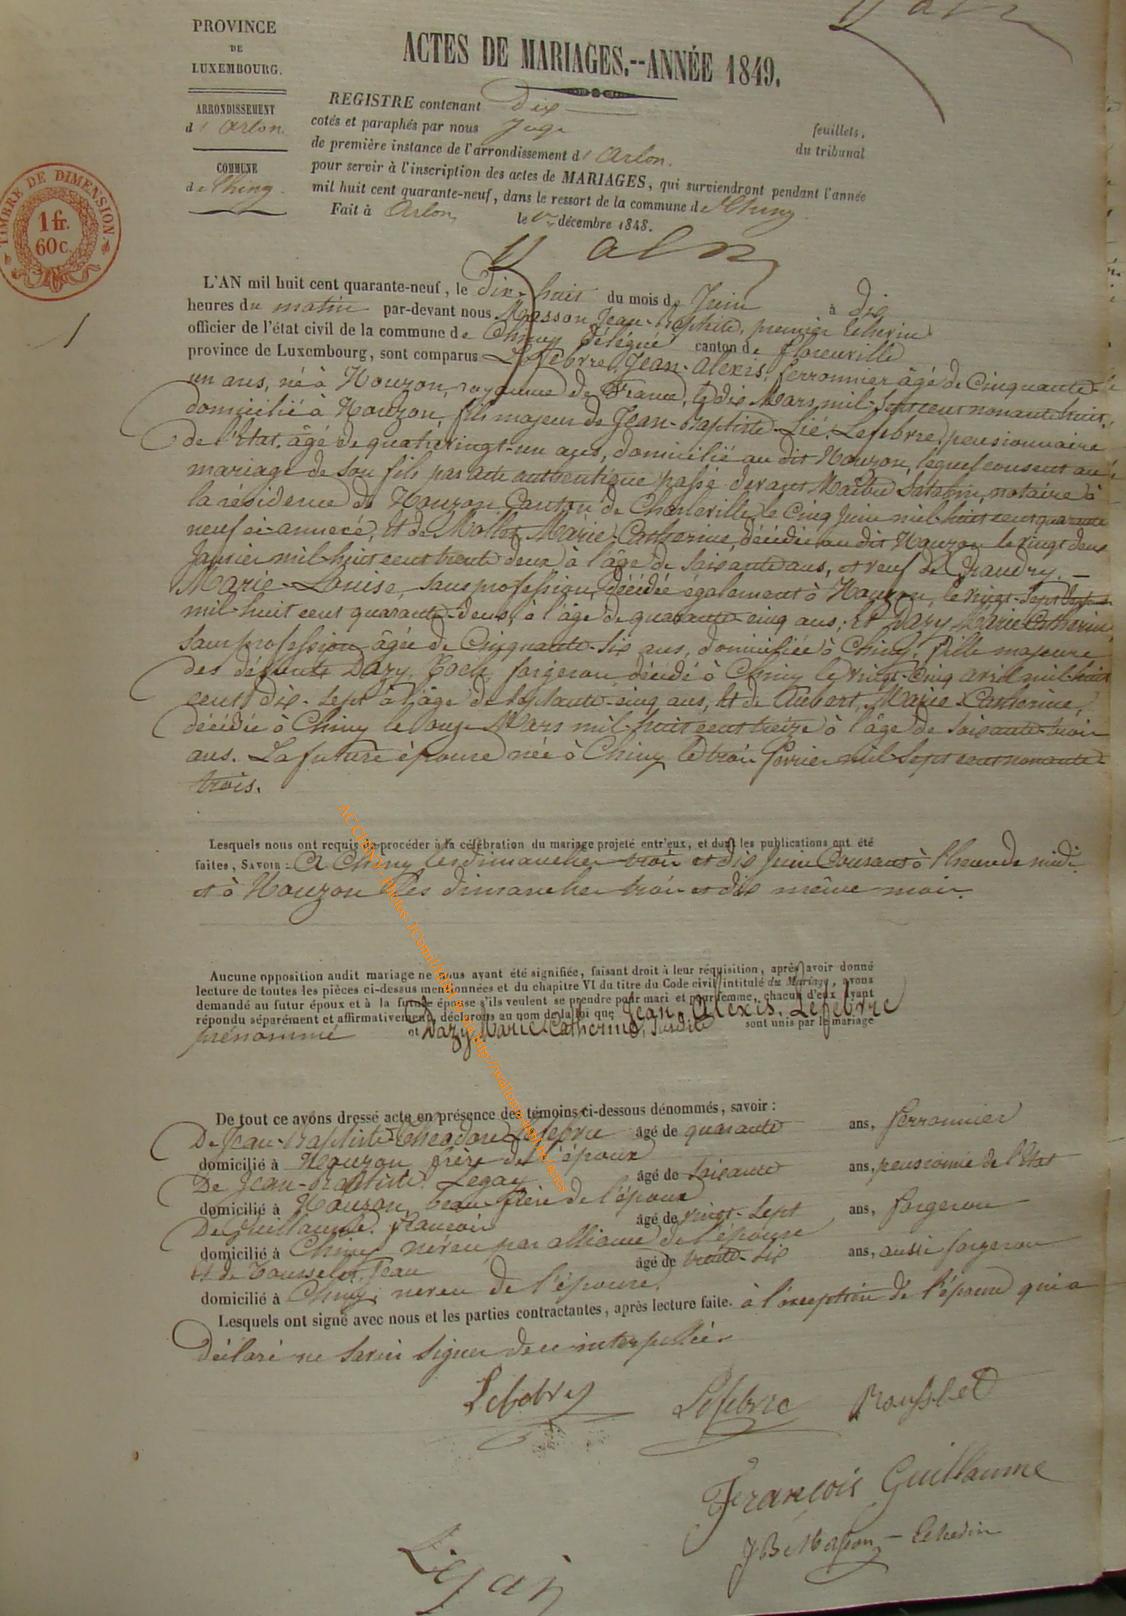 PROVINCE
DE
LUXEMBOURG.
ARRONDISSEMENT
d'Arlon.
COMMUNE
de Chiny.
TIMBRE DE DIMENSION
1 fr.
60 c.
1
ACTES DE MARIAGES.--ANNÉE 1849.
REGISTRE contenant Dix feuillets,
cotés et paraphés par nous Juge du tribunal
de première instance de l'arrondissement d'Arlon.
pour servir à l'inscription des actes de MARIAGES, qui surviendront pendant l'année
mil huit cent quarante-neuf, dans le ressort de la commune de Chiny.
Fait à Arlon, le 1er décembre 1848.
L'AN mil huit cent quarante-neuf, le dix-huit du mois de Juin à dix
heures du matin par-devant nous Masson Jean-Baptiste, premier Echevin
officier de l'état civil de la commune de Chiny délégué canton de florenville
province de Luxembourg, sont comparus Lefebvre, Jean-Alexis, ferronnier âgé de Cinquante
un ans, né à Nouzon, royaume de France, le dix Mars mil-sept cent nonante huit,
domicilié à Nouzon, fils majeur de Jean-Baptiste Lefebvre, pensionnaire
de l'Etat, âgé de quatrevingt-un ans, domicilié au dit Nouzon, lequel consent au
mariage de son fils par acte authentique passé devant Maître notaire à
la résidence de Nouzon Canton de Charleville le Cinq Juin mil-huit cent quarante
neuf ci-annexé, et de Marie-Catherine, décédée au dit Nouzon le vingt deux
Janvier mil-huit cent trente deux à l'âge de soixante ans, et veuf de Gaudry
Marie-Louise, sans profession, décédée également à Nouzon, le vingt-sept
mil-huit cent quarante-deux, à l'âge de quarante-cinq ans; Et Dazy, Marie Catherine
sans profession âgée de Cinquante-six ans, domiciliée à Chiny, fille majeure
des défunts Dazy, forgeron, décédé à Chiny le vingt-Cinq avril mil-huit
cent dix-sept à l'âge de septante-cinq ans, et de Marie Catherine,
décédée à Chiny le onze Mars mil-huit cent treize à l'âge de soixante-trois
ans. La future épouse née à Chiny le trois février mil sept cent nonante-
trois.
Lesquels nous ont requis de procéder à la célébration du mariage projeté entr'eux, et dont les publications ont été
faites, SAVOIR : A Chiny les dimanches trois et dix Juin Courant à l'heure de midi
et à Nouzon les dimanches trois et dix même mois.
Aucune opposition audit mariage ne nous ayant été signifiée, faisant droit à leur réquisition, après avoir donné
lecture de toutes les pièces ci-dessus mentionnées et du chapitre VI du titre du Code civil intitulé du Mariage, avons
demandé au futur époux et à la future épouse s'ils veulent se prendre pour mari et pour femme, chacun d'eux ayant
répondu séparément et affirmativement, déclarons au nom de la loi que Jean-Alexis Lefebvre
prénommé et Dazy Marie Catherine, susdite sont unis par le mariage
De tout ce avons dressé acte en présence des témoins ci-dessous dénommés, savoir :
De Jean-Baptiste Théodore Lefebvre âgé de quarante ans, ferronnier
domicilié à Nouzon frère de l'époux
De Jean-Baptiste Legay âgé de soixante ans, pensionné de l'Etat
domicilié à Nouzon, beau frère de l'époux
De Guillaume François âgé de vingt-sept ans, forgeron
domicilié à Chiny neveu par alliance de l'épouse
et de Rousselet Jean âgé de trente-six ans, aussi forgeron
domicilié à Chiny, neveu de l'épouse.
Lesquels ont signé avec nous et les parties contractantes, après lecture faite. à l'exception de l'épouse qui a
déclaré ne savoir signer de ce interpellée
Lefebvre Lefebvre Rousselet
François Guillaume
JB Masson Echevin